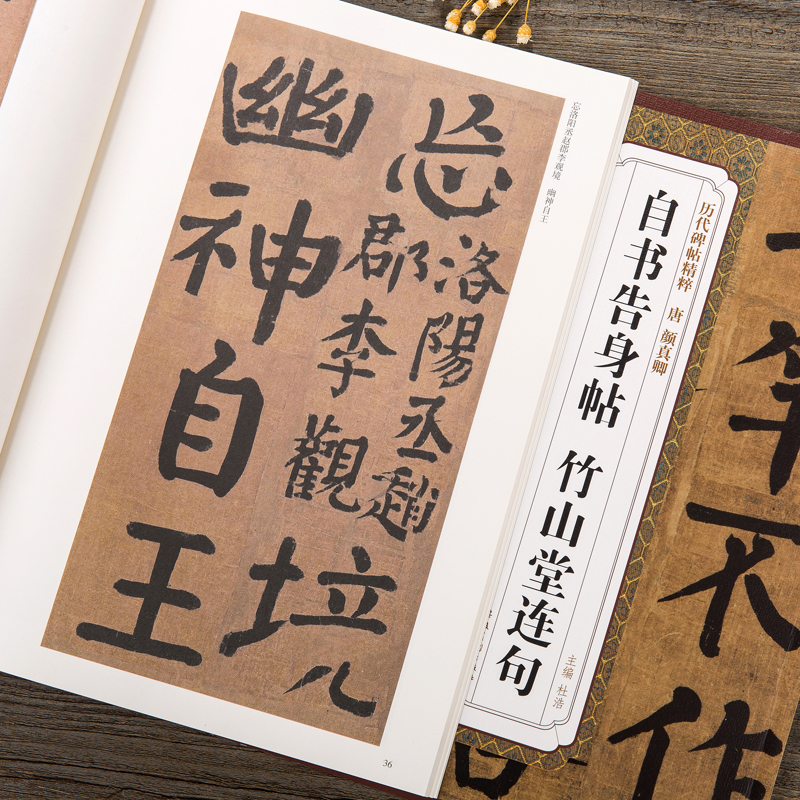 忘洛阳丞赵郡李观境 幽神自王
忘
洛陽丞趙
郡李觀
境
幽神自王
36
历代碑帖精粹 唐 颜真卿
自书告身帖 竹山堂连句
主编 杜浩
不作